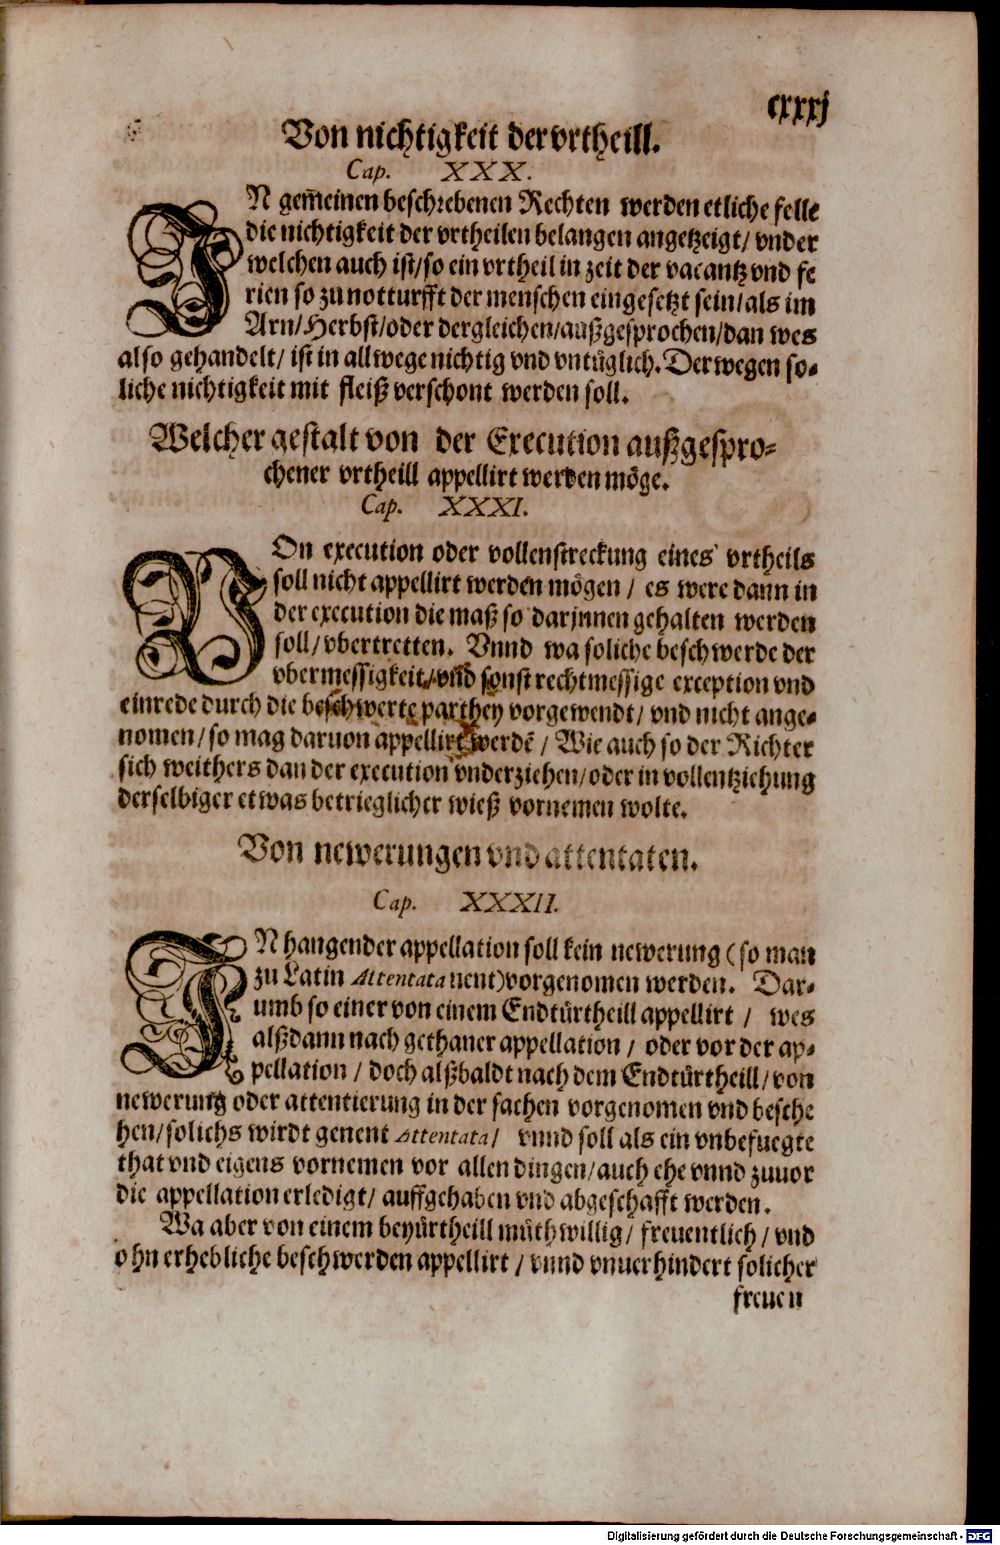 cxxxj
Von nichtigkeit der vrtheill.
Cap. XXX.
IN gem̄einen beschrebenen Rechten werden etliche felle
die nichtigkeit der vrtheilen belangen angetzeigt/ vnder
welchen auch ist/ so ein vrtheil in zeit der vacantz vnd fe
rien so zu notturfft der menschen eingesetzt sein/ als im
Arn/ Herbst/ oder dergleichen/ außgesprochen/ dan wes
also gehandelt/ ist in allwege nichtig vnd vntüglich. Derwegen so⸗
liche nichtigkeit mit fleiß verschont werden soll.
Welcher gestalt von der Execution außgespro⸗
chener vrtheill appellirt werden möge.
Cap. XXXI.
VOn execution oder vollenstreckung eines vrtheils
soll nicht appellirt werden mögen / es were dann in
der execution die maß so darjnnen gehalten werden
soll/ vbertretten. Vnnd wa soliche beschwerde der
vbermessigkeit/ vñd sonst rechtmessige exception vnd
einrede durch die beschwerte parthey vorgewendt/ vnd nicht ange⸗
nomen/ so mag daruon appellirt werdē / Wie auch so der Richter
sich weithers dan der execution vnderziehen/ oder in vollentziehung
derselbiger etwas betrieglicher wieß vornemen wolte.
Von newerungen vnd attentaten.
Cap. XXXII.
IN hangender appellation soll kein newerung (so man
zu Latin Attentata nent) vorgenomen werden. Dar⸗
umb so einer von einem Endtürtheill appellirt / wes
alßdann nach gethaner appellation / oder vor der ap⸗
pellation / doch alßbaldt nach dem Endtürtheill/ von
newerung oder attentierung in der sachen vorgenomen vnd besche
hen/ solichs wirdt genent Attentata/ vnnd soll als ein vnbefuegte
that vnd eigens vornemen vor allen dingen/ auch ehe vnnd zuuor
die appellation erledigt/ auffgehaben vnd abgeschafft werden.
Wa aber von einem beyürtheill müthwillig/ freuentlich/ vnd
ohn erhebliche beschwerden appellirt / vnnd vnuerhindert solicher
freuen
Digitalisierung gefördert durch die Deutsche Forschungsgemeinschaft - DFG